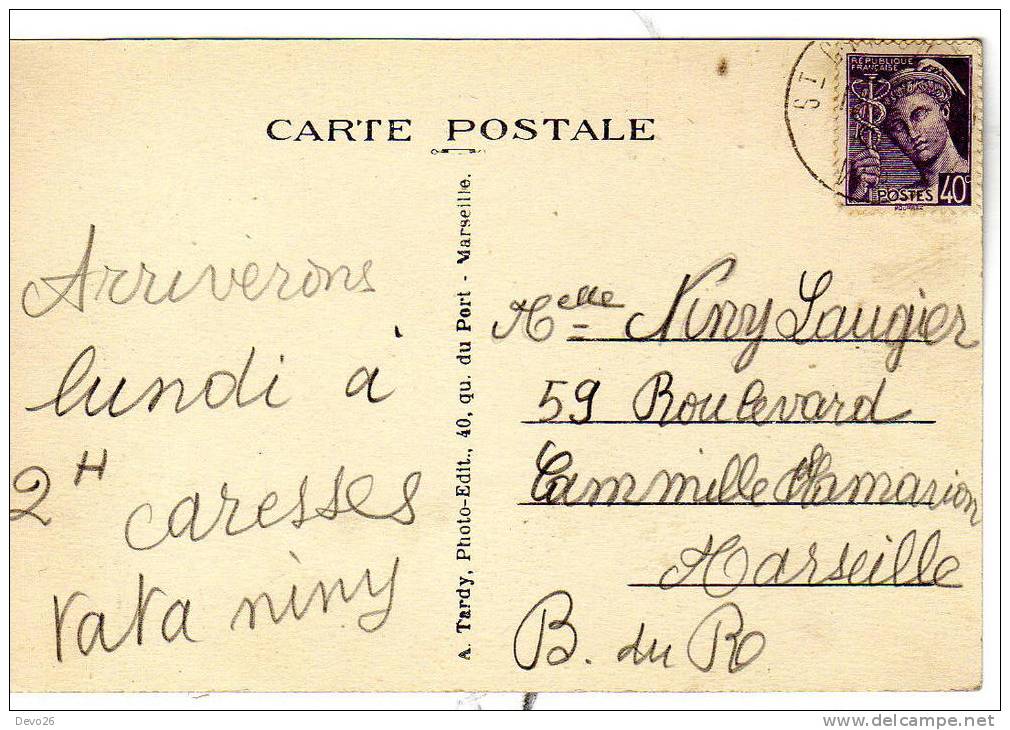 CARTE POSTALE
RÉPUBLIQUE
FRANÇAISE
POSTES 40c
ST
Arriverons
lundi à
2H caresses
tata niny
A. Tardy, Photo-Edit., 40, qu. du Port - Marseille.
Melle Niny Laugier
59 Boulevard
Cammille Flamarion
Marseille
B. du R
Devo26
www.delcampe.net